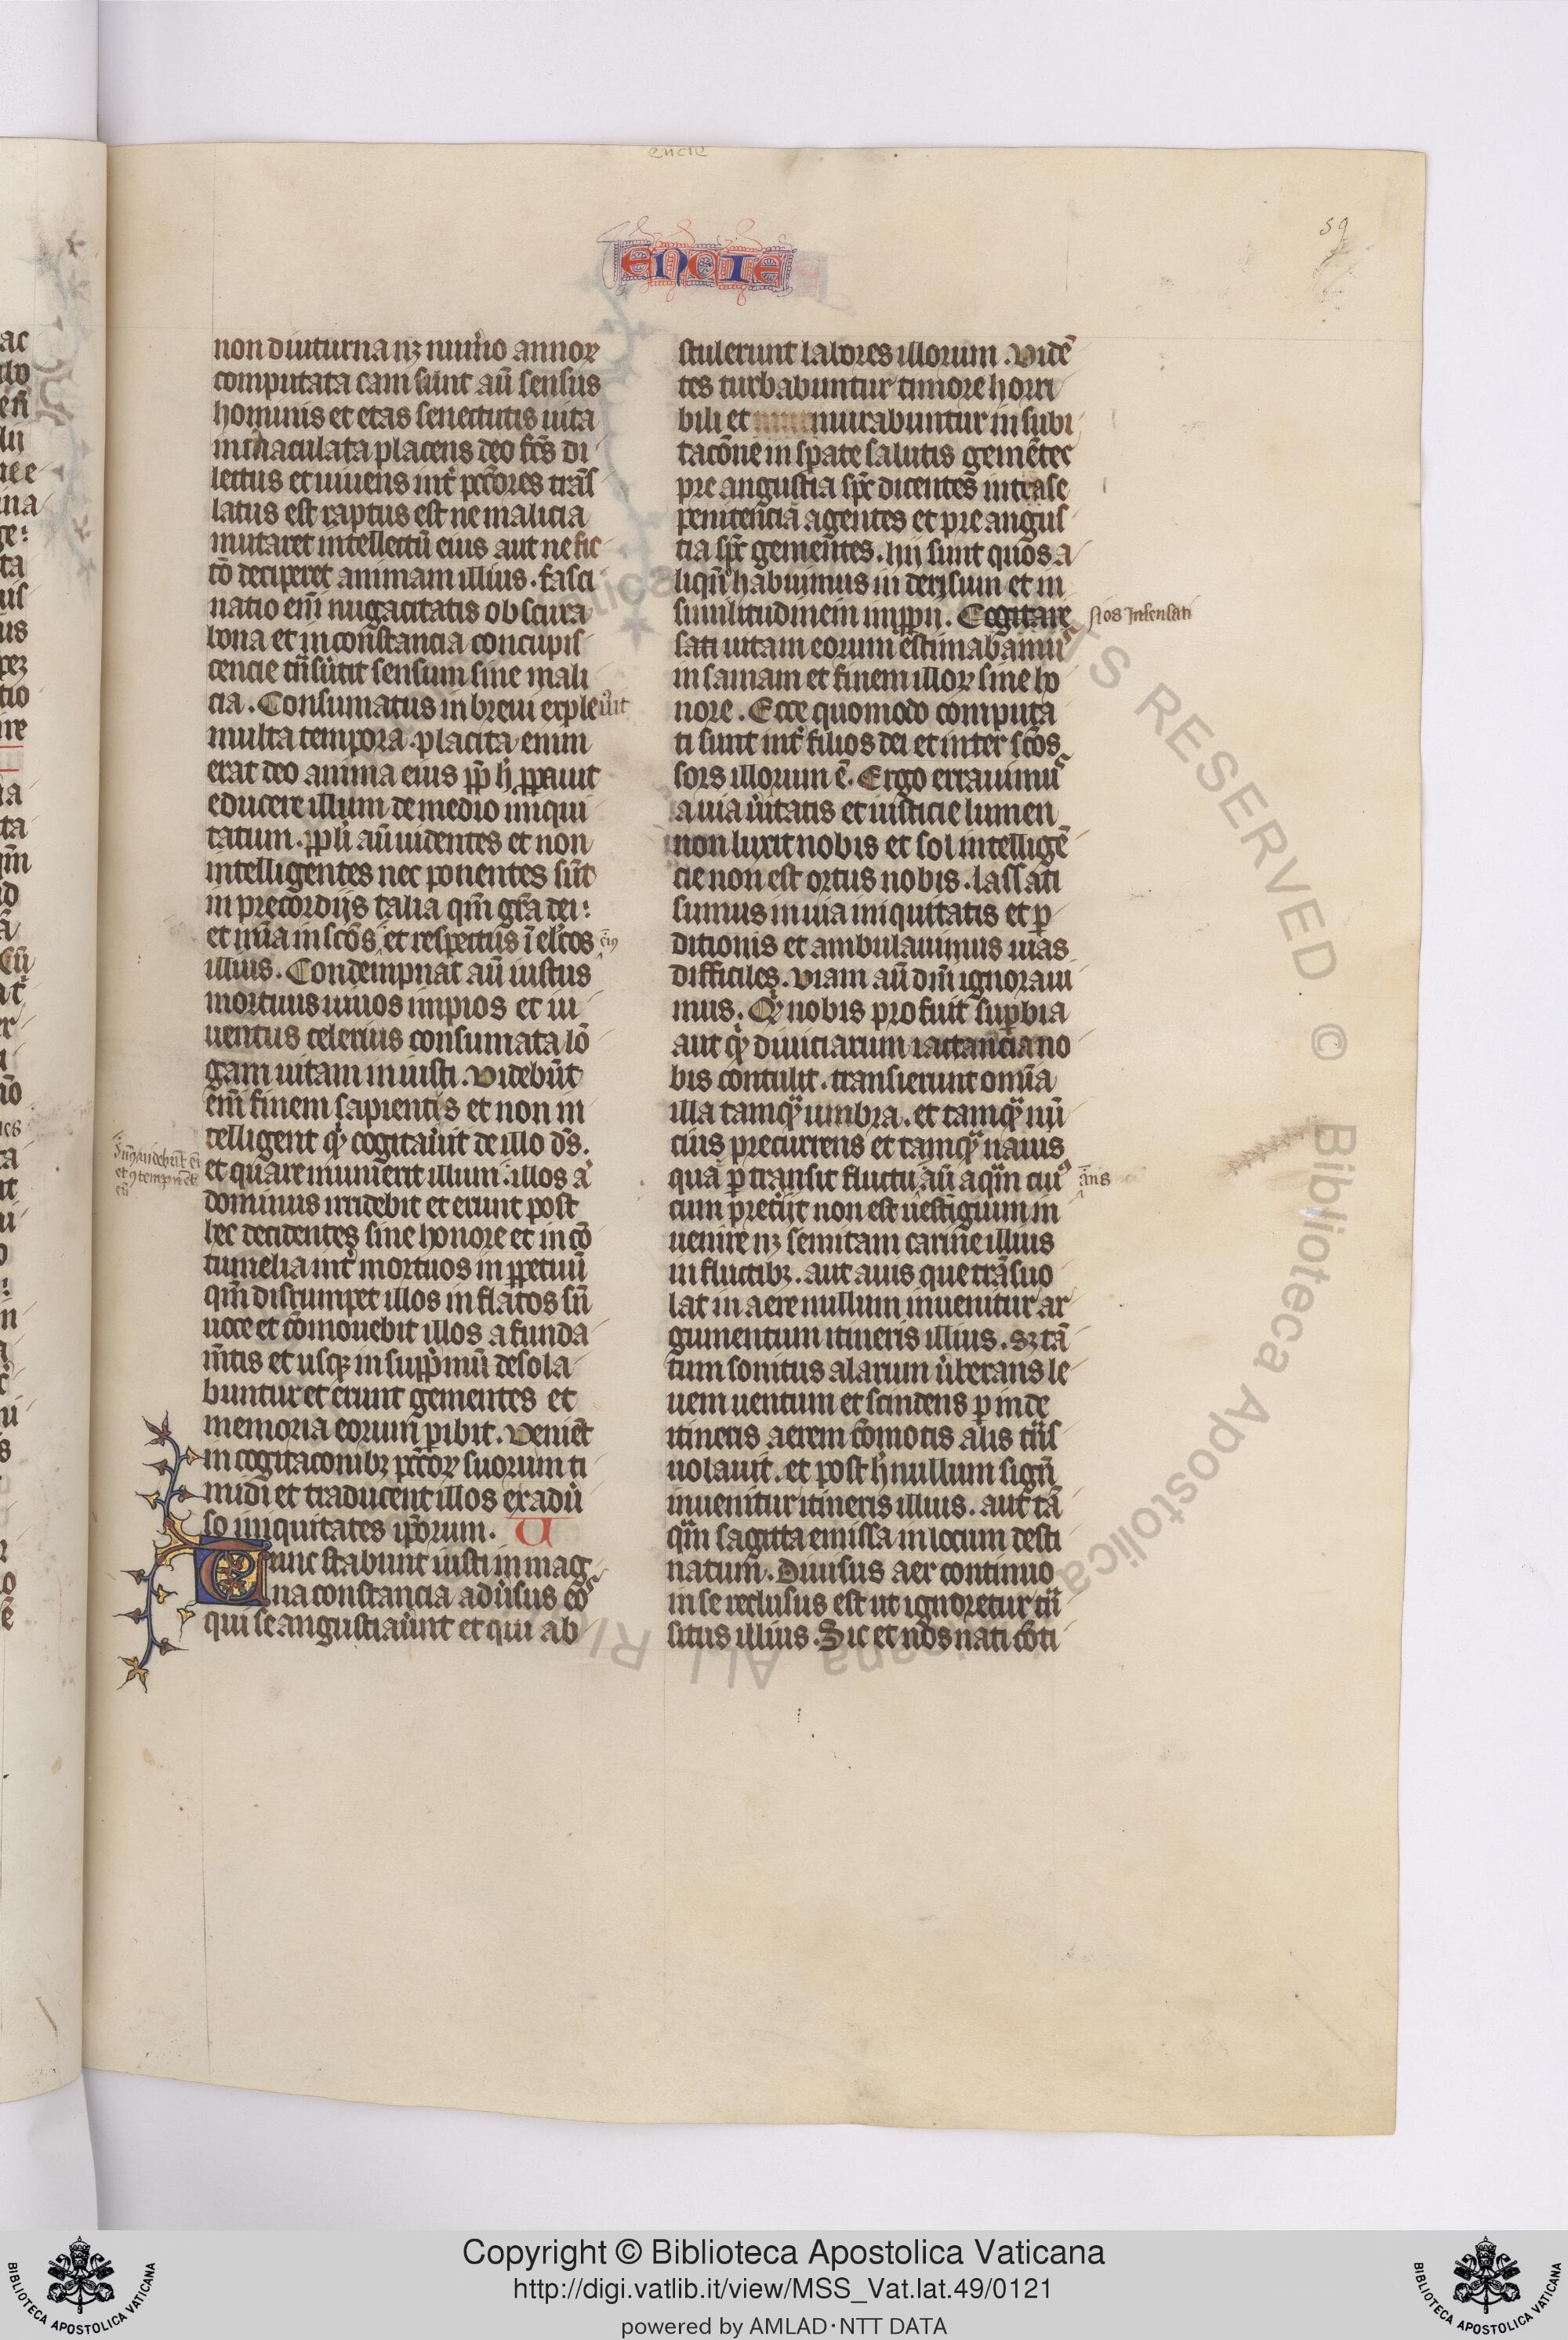 encie
59
ENCIE
non diuturna nȝ num̄o annoꝝ
computata cani sunt aū sensus
hominis et etas senectutis uita
inmaculata placens deo fc̄s di
lectus et uiuens int̉ pc̄cores trāſ
latus est raptus est ne malicia
mutaret intellectū eius aut ne fic
tō deciperet animam illius. fasci
natio enī nugacitatis obscura
bona et inconstancia concupiſ
cencie tn̄sūtit sensum sine mali
cia. Consumatus in breui expleuit
multa tempora. placita enim
erat deo anima eius ꝓp̄ h̉ ꝓpauit
educere illum de medio iniqui
tatum. ppl̉i aū uidentes et non
intelligentes nec ponentes sūt
in precordijs talia qm̄ gr̄a dei:
et mīa in scōs et respectus ī elc̄os
illius. Condempnat aū iustus
mortuus uiuos impios et iu
uentus celerius consumata lō
gam uitam iniusti. Videbūt
enī finem sapientis et non in
telligent qͥd cogitauit de illo dn̄s.
et quare munierit illum. illos a̓
dominus irridebit et erunt post
hec decidentes sine honore et in cō
tumelia int̉ mortuos in ꝑpetuū
qm̄ disrumpet illos inflatos sn̄
uoce et cōmouebit illos a funda
m̄tis et usqȝ in supp̄mū desola
buntur et erunt gementes et
memoria eorum ꝑibit. Veniēt
in cogitaconibȝ pc̄coꝝ suorum ti
midi et traducent illos ex adu̓
so iniquitates ip̄orum. V
Tunc stabunt iusti in mag
na constancia adu̓sus eos
qui se angustiauīnt et qui ab
stulerunt labores illorum. Vidē
tes turbabuntur timore horri
bili et mirabuntur in subi
tacōne insꝑate salutis gemētes
pre angustia spc̄ dicentes intra se
penitenciā agentes et pre anguſ
tia spc̄ gementes. hij sunt quos a
liqn̄ habuimus in derisum et in
similitudinem imꝓpii. Cogitare
Nos Insensati
sati uitam eorum estimabamus
insaniam et finem illoꝝ sine ho
nore. Ecce quomodo computa
ti sunt int̉ filios dei et inter scōs
sors illorum ē. Ergo errauimus
a uia u̓itatis et iusticie lumen
non luxit nobis et sol intelligē
cie non est ortus nobis. lassati
sumus in uia iniquitatis et ꝑ
ditionis et ambulauimus uias
difficiles. Viam aū dn̄i ignoraui
mus. Qͥd nobis profuit suꝑbia
aut qͥd diuiciarum iactancia no
bis contulit. transierunt omnīa
illa tamqᷓ umbra. et tamqᷓ nū
cius precurrens et tamqᷓ nauis
que ꝑtransit fluctuāt̄ aqᷓm cuius
cum preterijt non est uestigium in
uenire nȝ semitam carine illius
in fluctibȝ. aut auis que trāsuo
lat in aere nullum inuenitur ar
gumentum itineris illius. sȝ tā
tum sonitus alarum u̓berans le
uem uentum et scindens ꝑ inde
itineris aerem cōmotis alis tn̄ſ
uolauit. et post h̉ nullum signū
inuenitur itineris illius. aut tā
qᷓm sagitta emissa in locum desti
natum. Diuisus aer continuo
in se reclusus est ut ignoretur tn̄
situs illius. Sic et nos nati cōti
Copyright © Biblioteca Apostolica Vaticana
http://digi.vatlib.it/view/MSS_Vat.lat.49/0121
powered by AMLAD·NTT DATA